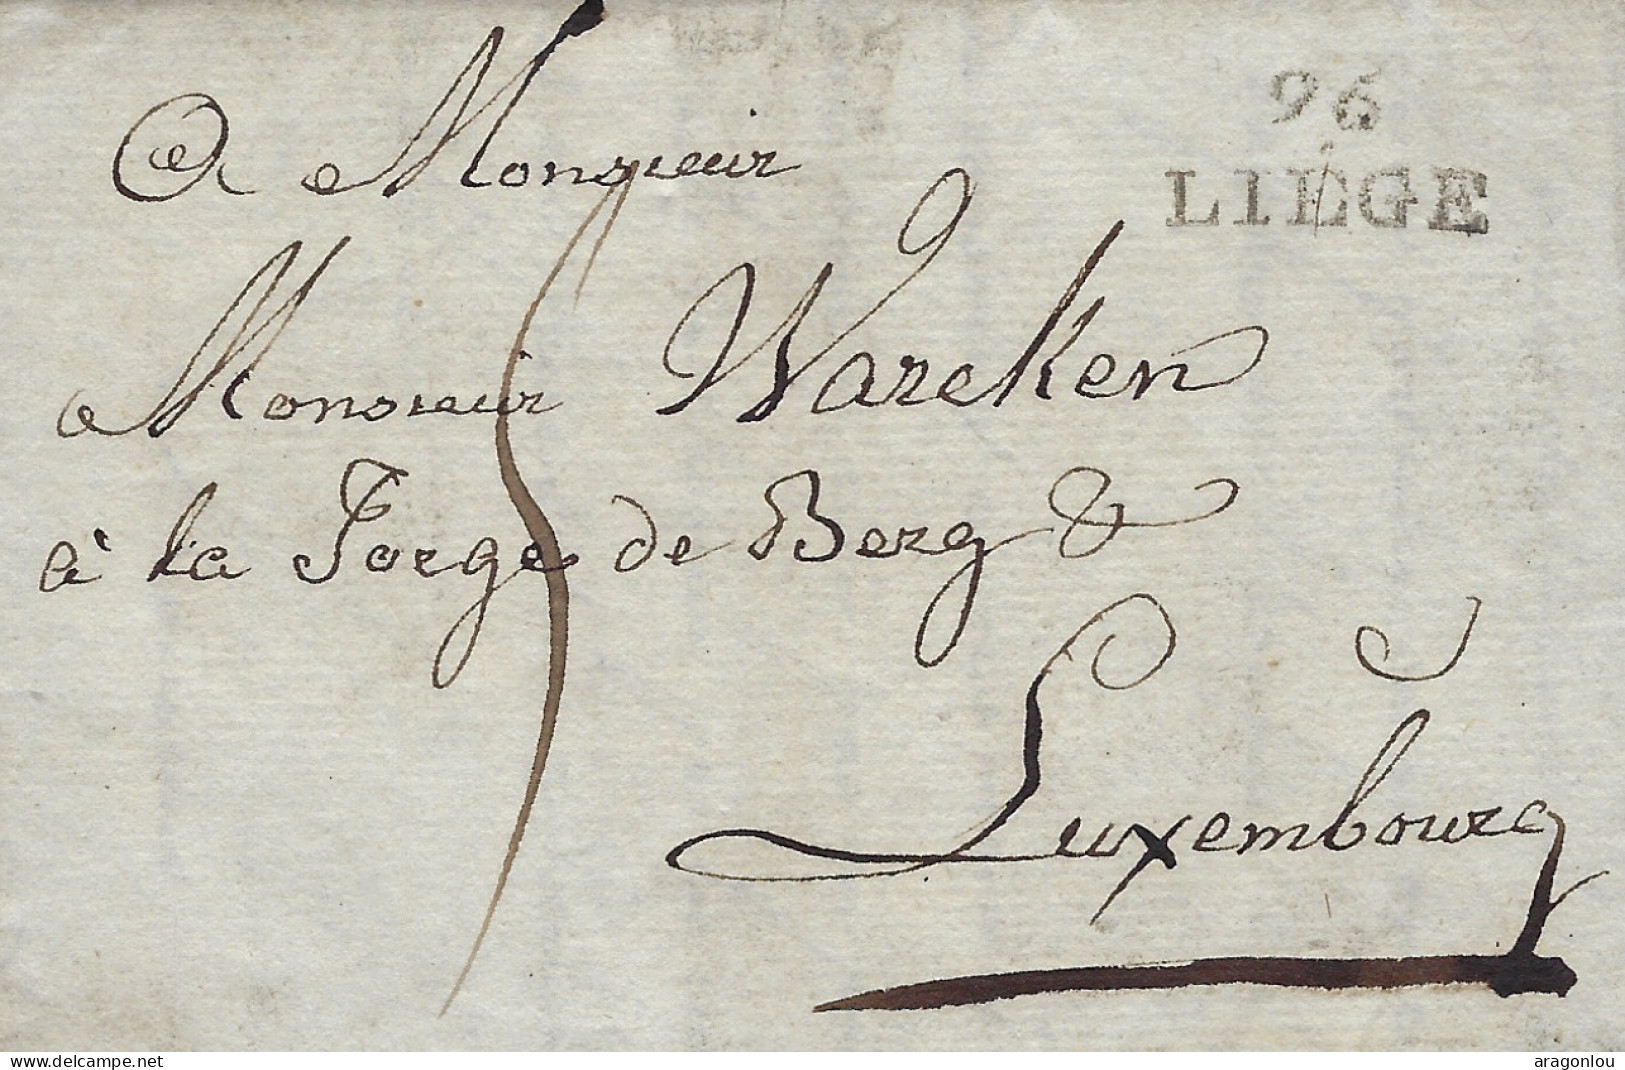 96
LIEGE
A Monsieur
Monsieur Warcken
à la Forge de Berg &
Luxembourg
5
www.delcampe.net
aragonlou